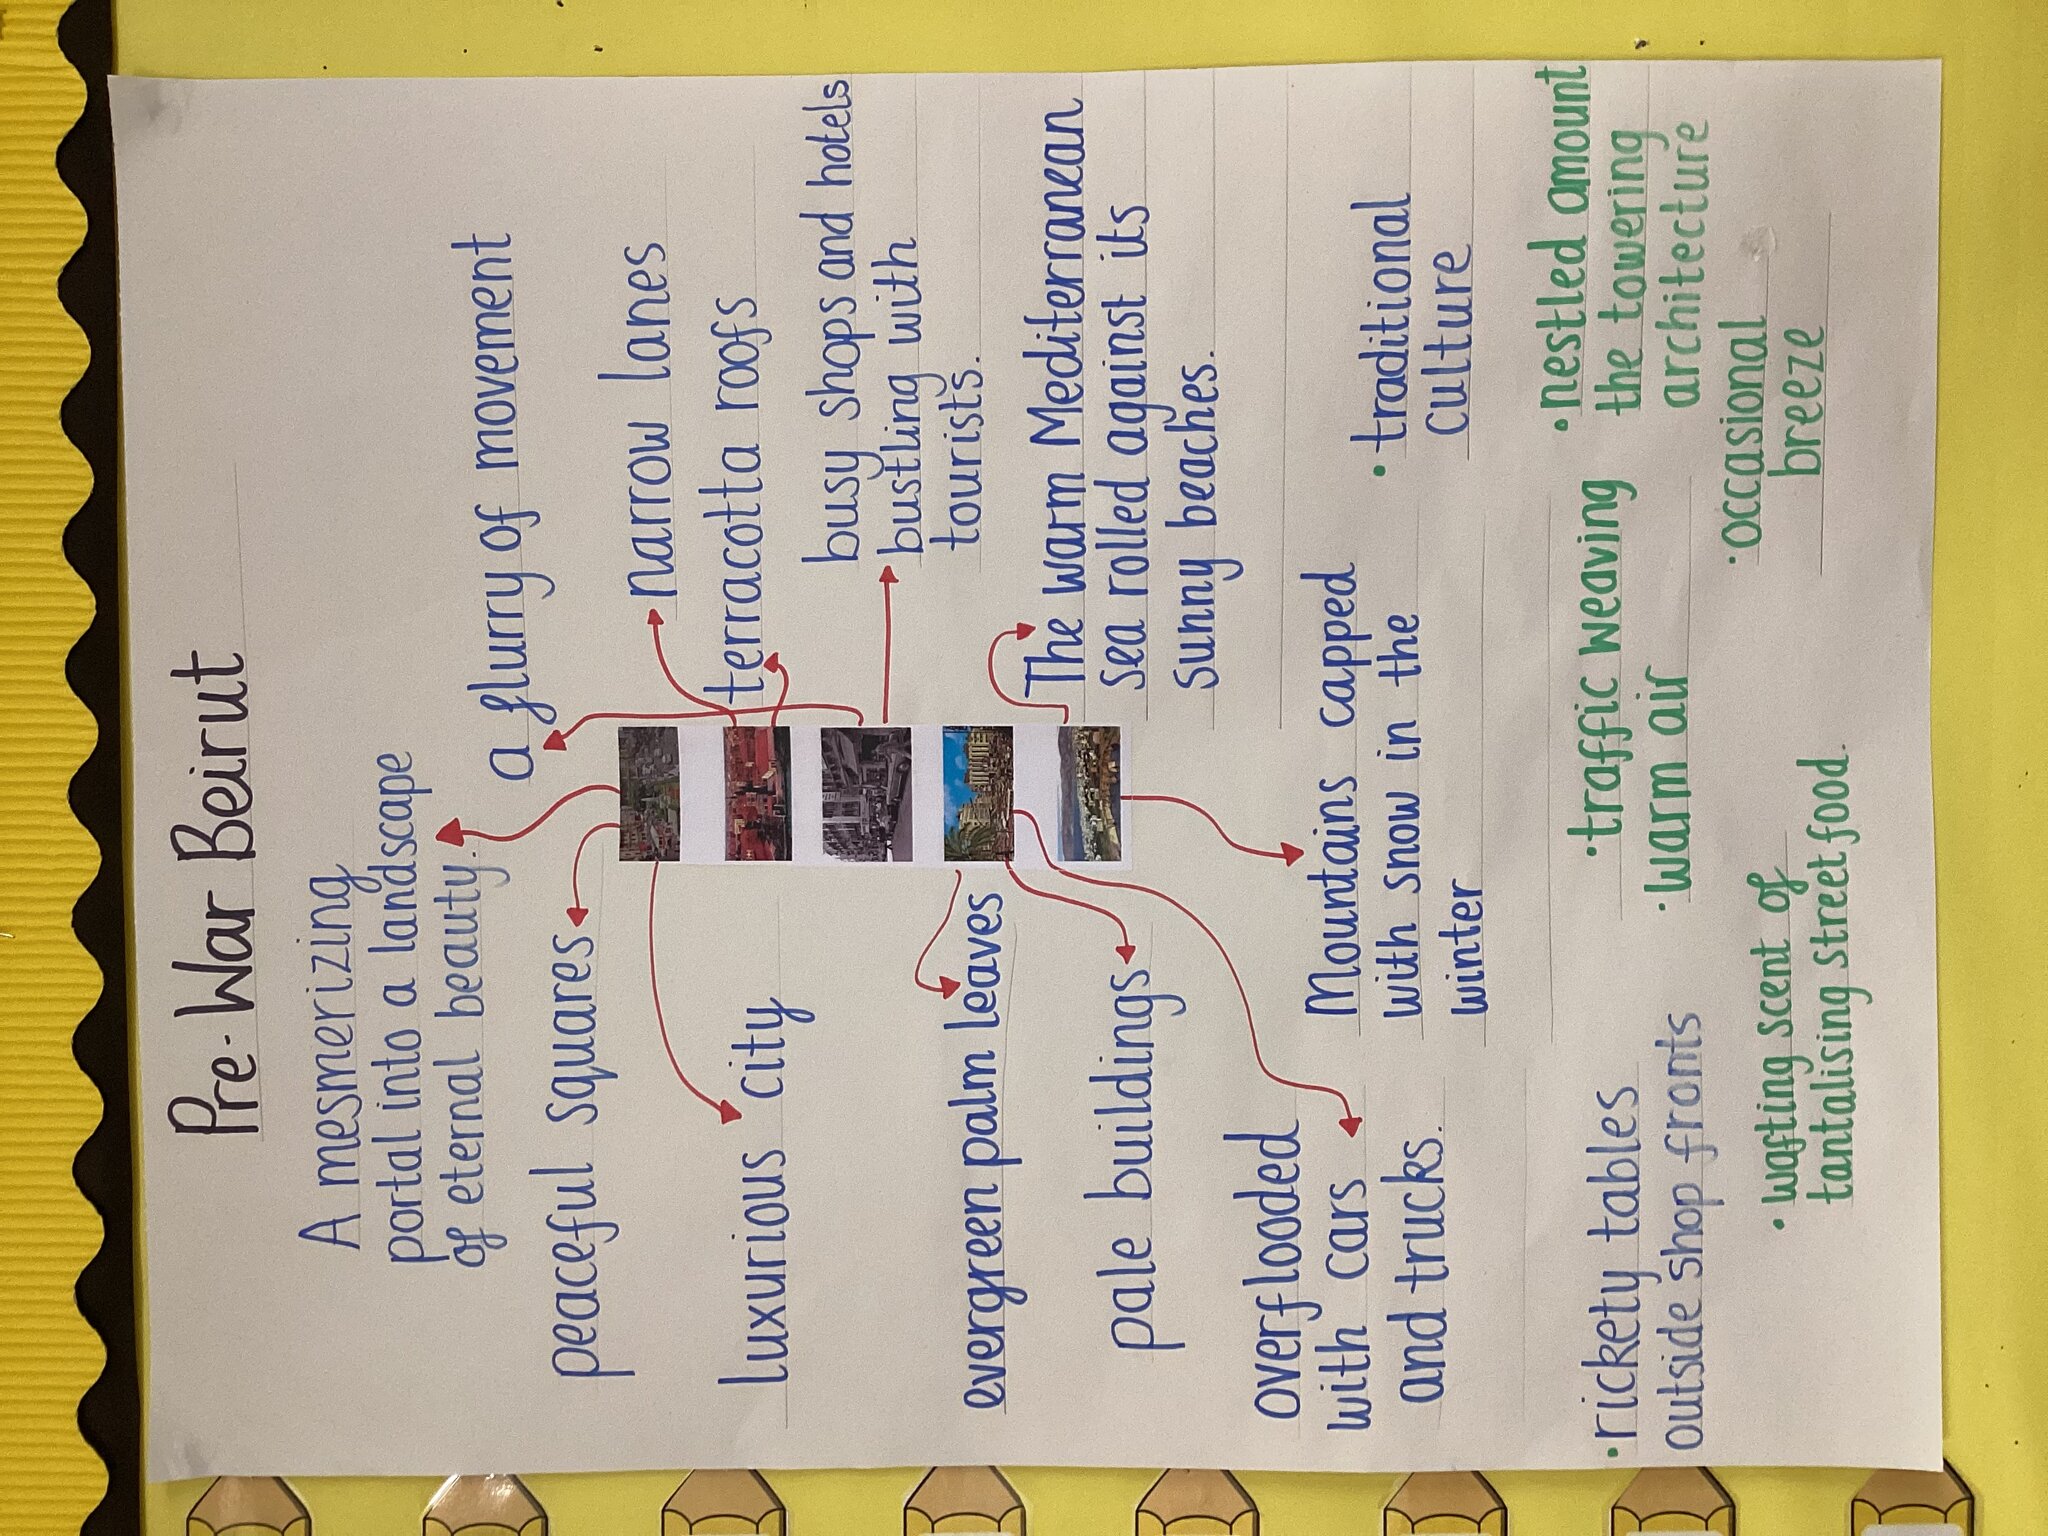 Pre-War Beirut
A mesmerizing
portal into a landscape
of eternal beauty.
a flurry of movement
peaceful squares
narrow lanes
luxurious city
terracotta roofs
busy shops and hotels
bustling with
tourists.
evergreen palm leaves
The warm Mediterranean
sea rolled against its
sunny beaches.
pale buildings
overflooded
with cars
and trucks.
Mountains capped
with snow in the
winter
• traditional
culture
• nestled amount
the towering
architecture
• rickety tables
outside shop fronts
• traffic weaving
• warm air
• occasional
breeze
• wafting scent of
tantalising street food.